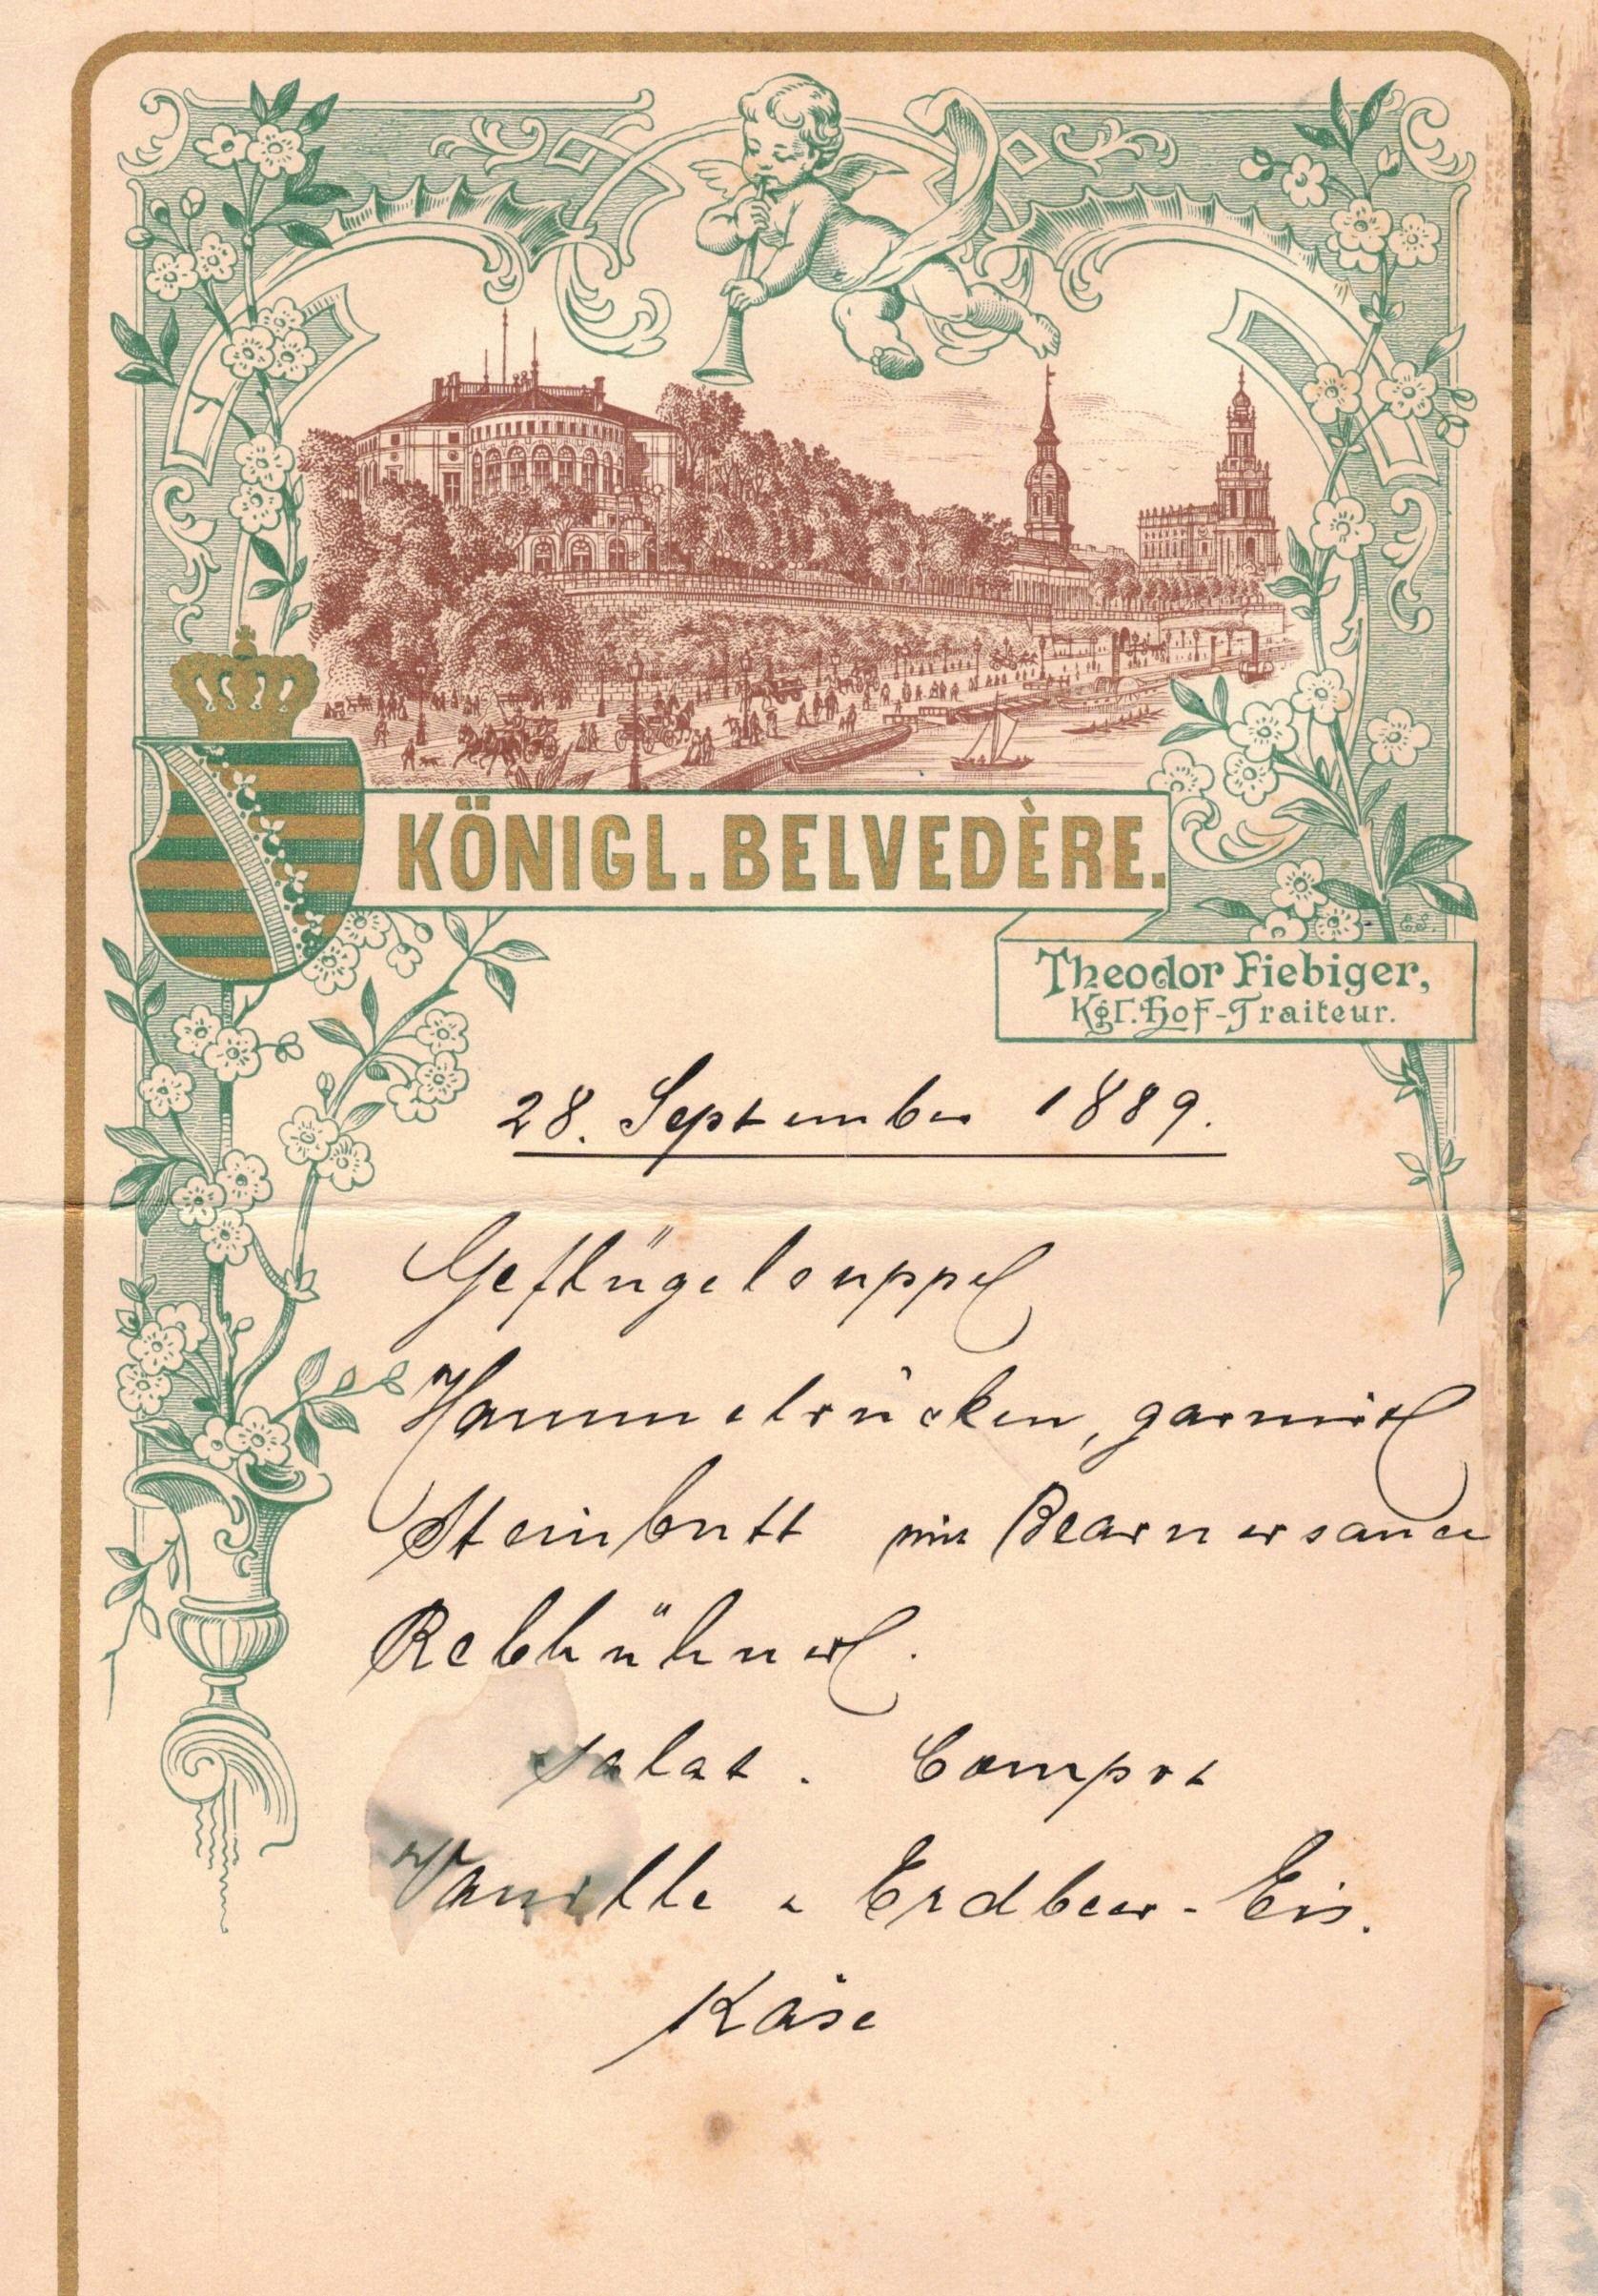 KÖNIGL. BELVEDÈRE.
E.S.
Theodor Fiebiger,
Kgl. Hof-Traiteur.
28. September 1889.
Geflügelsuppe
Hammelrücken, garnirt
Steinbutt mit Bearnersauce
Rebhühner.
Salat. Compot
Vanille u Erdbeer-Eis.
Käse